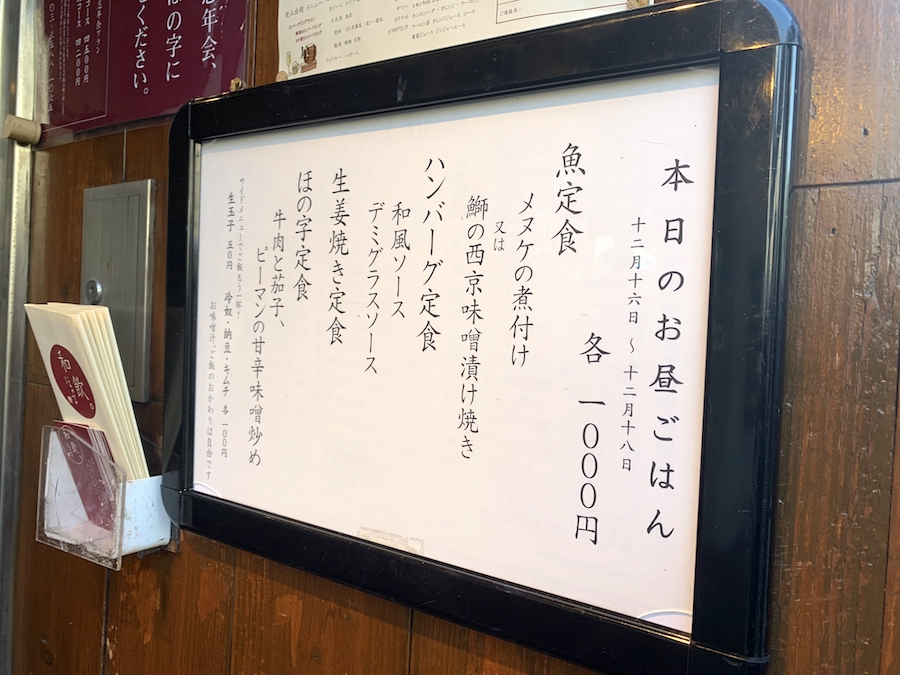 本日のお昼ごはん
十二月十六日 〜 十二月十八日
各 一000円
魚定食
メヌケの煮付け
又は
鰤の西京味噌漬け焼き
ハンバーグ定食
和風ソース
デミグラスソース
生姜焼き定食
ほの字定食
牛肉と茄子、
ピーマンの甘辛味噌炒め
サイドメニューでご飯もう一杯!
生玉子 五0円 冷奴・納豆・キムチ 各 一00円
お味噌汁、ご飯のおかわりは自由です
忘年会、
ほの字に
ください。
コース 四五00円
コース 四二00円